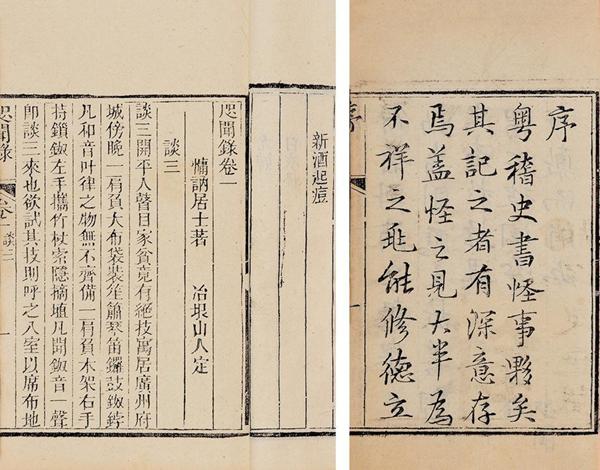 序
粤稽史書怪事夥矣
其記之者有深意存
焉蓋怪之見大半為
不祥之兆能修德立
新酒起痘
咫聞錄卷一
慵訥居士著 冶垠山人定
談三
談三開平人瞽目家貧竟有絕技寓居廣州府
城傍晚一肩負大布袋裝笙簫琴笛鑼鼓鈸鈴
凡和音叶律之物無不齊備一肩負木架右手
持鎖鈸左手攜竹杖索隱摘埴凡聞鈸音一聲
即談三來也欲試其技則呼之入室以席布地
咫聞錄
卷一
談三